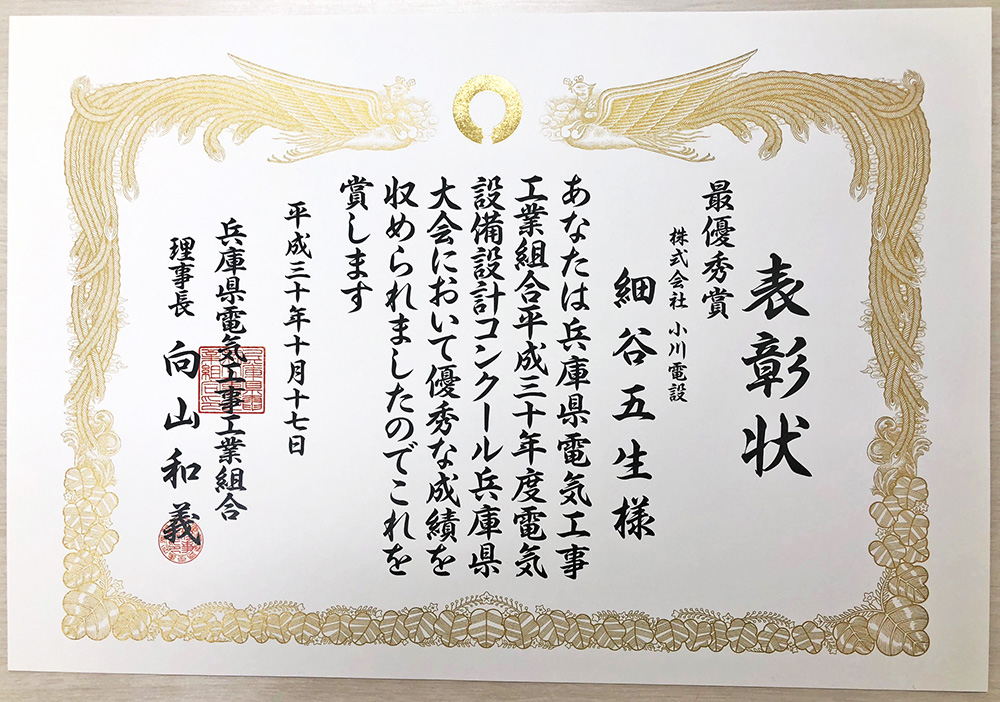 表彰状
最優秀賞
株式会社 小川電設
細谷五生様
あなたは兵庫県電気工事
工業組合平成三十年度電気
設備設計コンクール兵庫県
大会において優秀な成績を
収められましたのでこれを
賞します
平成三十年十月十七日
兵庫県電気工事工業組合
理事長 向山和義